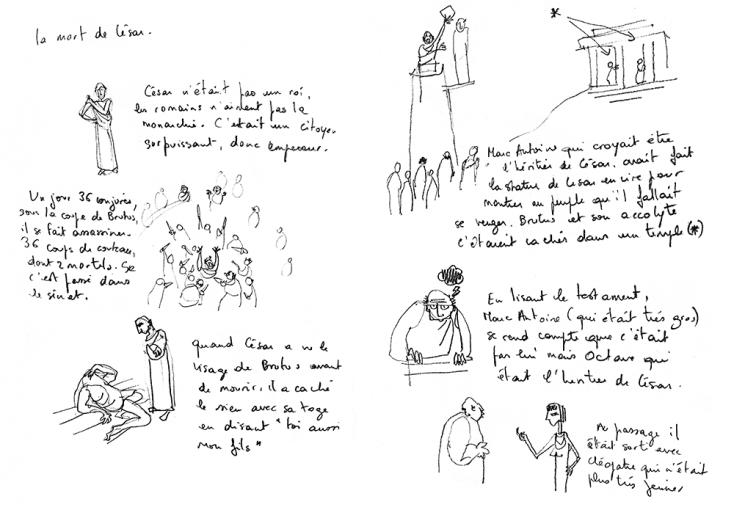 la mort de César.
César n'était pas un roi,
les romains n'aiment pas la
monarchie. C'était un citoyen
surpuissant, donc empereur.
Un jour 36 conjurés,
sous la coupe de Brutus,
il se fait assassiner.
36 coups de couteau,
dont 2 mortels.
c'est passé dans
le sénat.
quand César a vu le
visage de Brutus avant
de mourir, il a caché
le sien avec sa toge
en disant "toi aussi
mon fils"
*
Marc Antoine qui croyait être
l'héritier de César, avait fait
la statue de César en cire pour
montrer au peuple qu'il fallait
se venger. Brutus et son accolyte
c'étaient cachés dans un temple (*)
En lisant le testament,
Marc Antoine (qui était très gros)
se rend compte que c'était
pas lui mais Octave qui
était l'héritier de César.
Au passage il
était sorti avec
cléopatre qui n'était
plus très jeune.